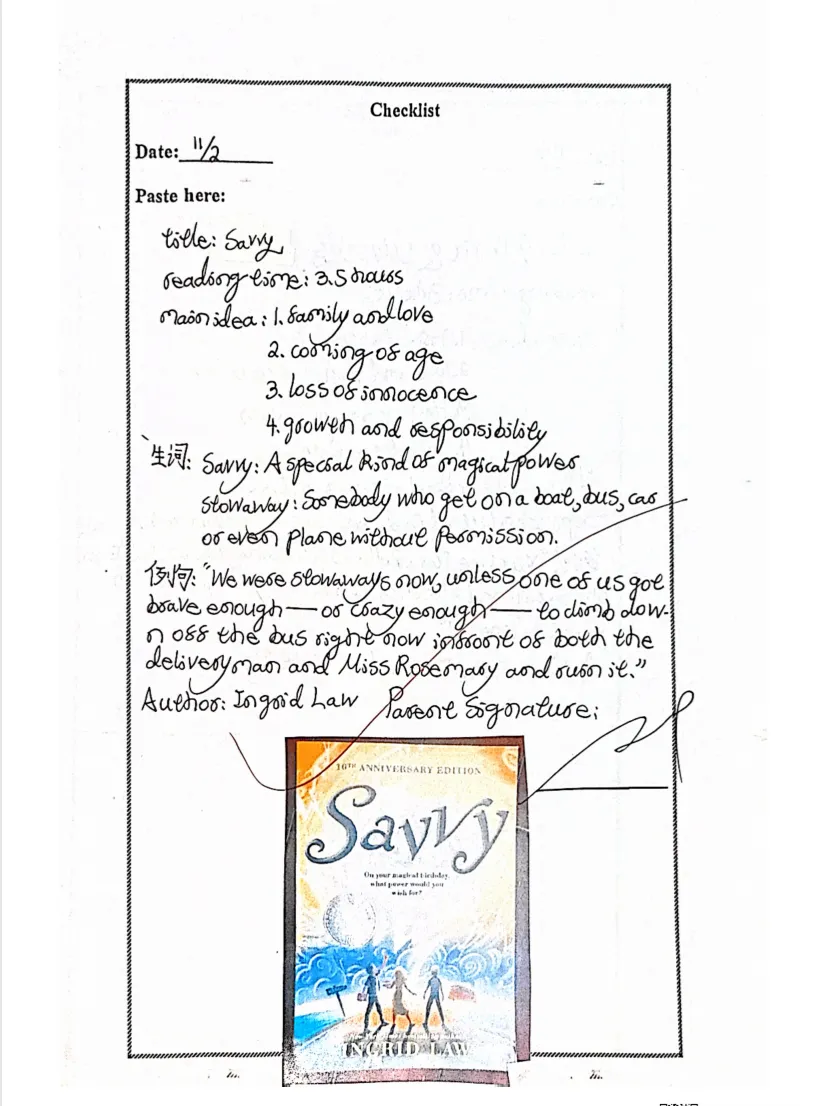 Checklist
Date: 11/2
Paste here:
title: Savvy
reading time: 3.5 hours
main idea: 1. family and love
2. coming of age
3. loss of innocence
4. growth and responsibility
生词: Savvy: A special kind of magical power
stowaway: Somebody who get on a boat, bus, car
or even plane without permission.
例句: "We were stowaways now, unless one of us got
brave enough — or crazy enough — to climb dow-
n off the bus right now infront of both the
deliveryman and Miss Rosemary and ruin it."
Author: Ingrid Law Parent Signature:
10TH ANNIVERSARY EDITION
Savvy
On your magical birthday,
what power would you
wish for?
INGRID LAW